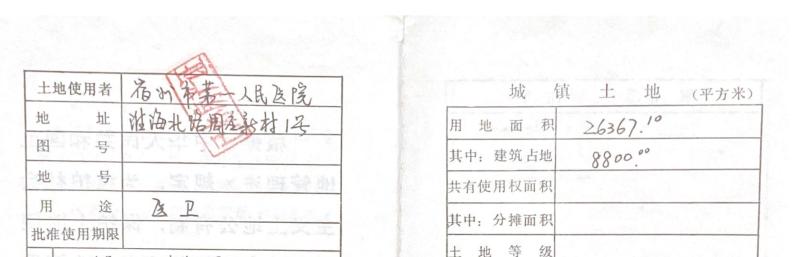 土地使用者 宿州市第一人民医院
地 址 淮海北路周庄新村1号
图 号
地 号
用 途 医卫
批准使用期限
城 镇 土 地 (平方米)
用地面积 26367.10
其中：建筑占地 8800.00
共有使用权面积
其中：分摊面积
土地等级